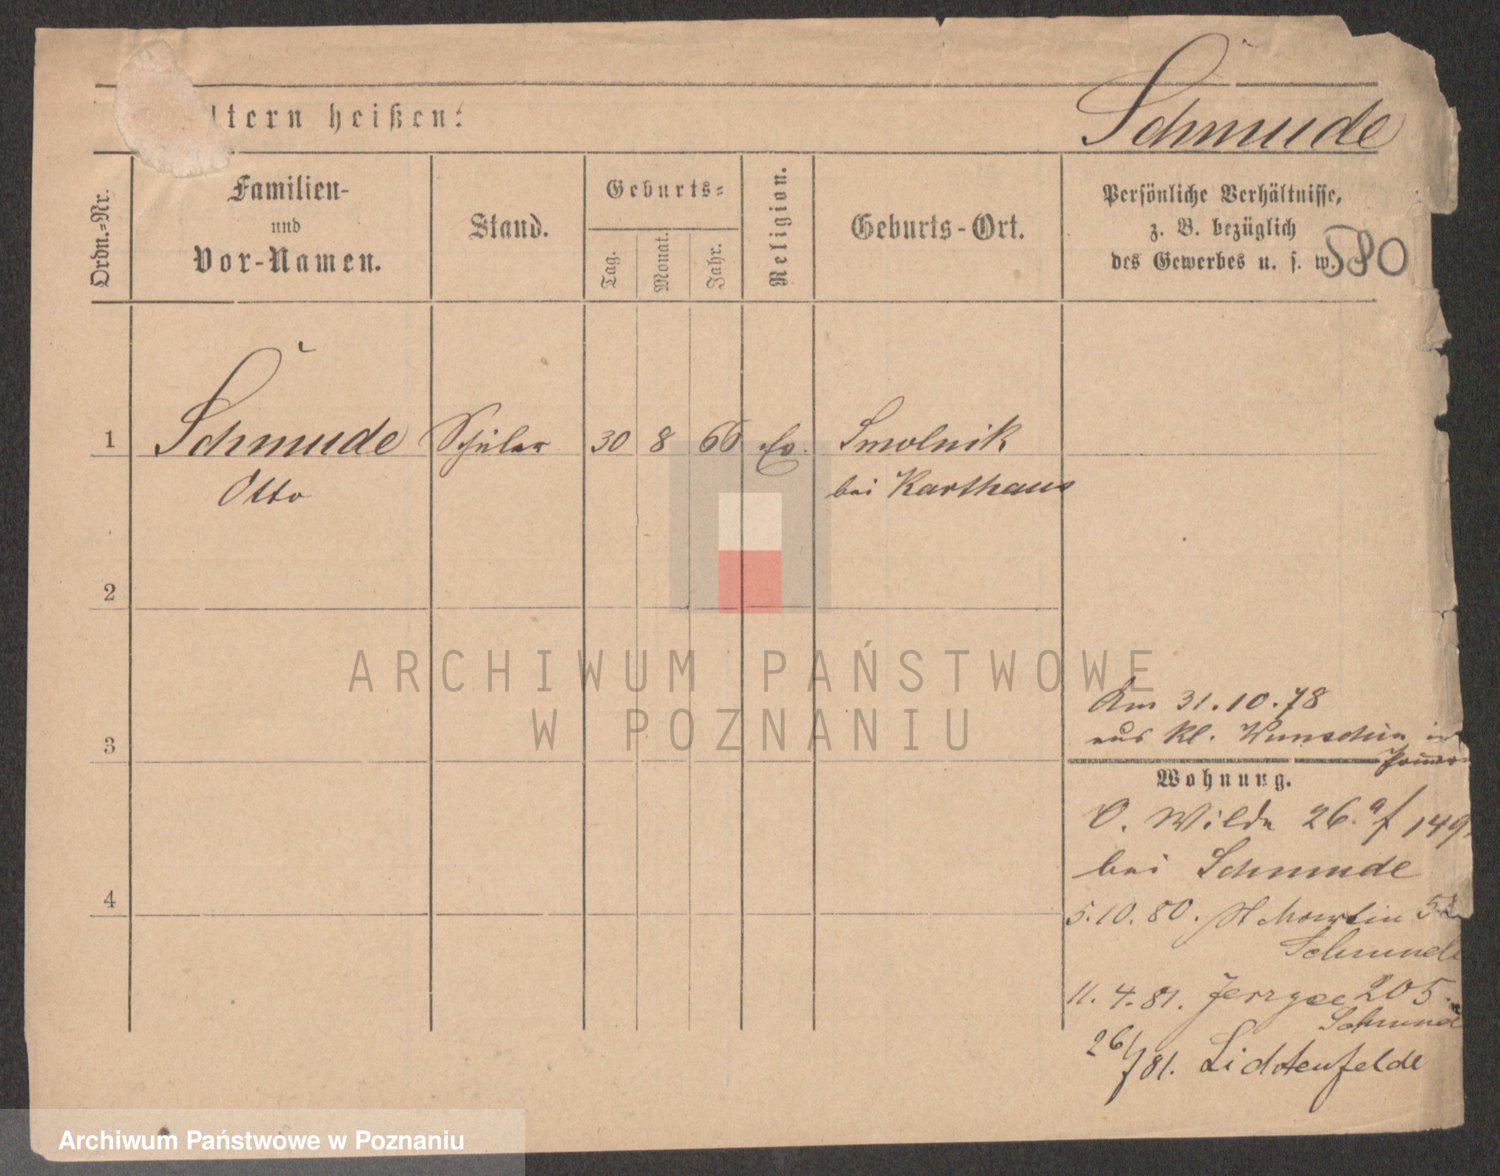 ltern heißen:
Schmude
Ordn.-Nr.
Familien-
und
Vor-Namen.
Stand.
Geburts-
Tag.
Monat.
Jahr.
Religion.
Geburts-Ort.
Persönliche Verhältnisse,
z. B. bezüglich
des Gewerbes u. s. w.
580
1 Schmude Schüler 30 8 66 ev. Smolnik
Otto bei Karthaus
2
3
4
ARCHIWUM PAŃSTWOWE
W POZNANIU
Am 31.10.78
aus Kl. Wunschin in
Wohnung.
O. Wilda 26. 9/ 149
bei Schmude
5.10.80. St Martin 52
Schmude
11.4.81. Jerzyce 205.
Schmud
26/7 81. Lichtenfelde
Archiwum Państwowe w Poznaniu